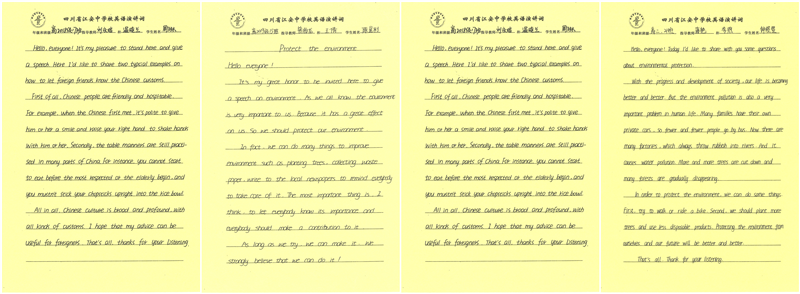 四川省江安中学校英语演讲词
Hello, everyone! It's my pleasure to stand here and give
a speech. Here I'd like to share two typical examples on
how to let foreign friends know the Chinese customs.
First of all, Chinese people are friendly and hospitable.
For example, when the Chinese first met, it's polite to give
him or her a smile and raise your right hand to shake hands
with him or her. Secondly, the table manners are still practi-
sed in many parts of China. For instance, you cannot start
to eat before the most respected or the elderly begin, and
you mustn't stick your chopsticks upright into the rice bowl.
All in all, Chinese culture is broad and profound, with
all kinds of customs. I hope that my advice can be
useful for foreigners. That's all, thanks for your listening
四川省江安中学校英语演讲词
Protect the environment
Hello everyone!
It's my great honor to be invited here to give
a speech on environment. As we all know the environment
is very important to us. Because it has a great effect
on us. So we should protect our environment.
In fact, we can do many things to improve
environment, such as planting trees, collecting waste
paper, write to the local newspapers to remind everybody
to take care of it. The most important thing is, I
think, to let everybody know its importance and
everybody should make a contribution to it.
As long as we try, we can make it, we
strongly believe that we can do it!
四川省江安中学校英语演讲词
Hello, everyone! It's my pleasure to stand here and give
a speech. Here I'd like to share two typical examples on
how to let foreign friends know the Chinese customs.
First of all, Chinese people are friendly and hospitable.
For example, when the Chinese first met, it's polite to give
him or her a smile and raise your right hand to shake hands
with him or her. Secondly, the table manners are still practi-
sed in many parts of China. For instance, you cannot start
to eat before the most respected or the elderly begin, and
you mustn't stick your chopsticks upright into the rice bowl.
All in all, Chinese culture is broad and profound, with
all kinds of customs. I hope that my advice can be
useful for foreigners. That's all, thanks for your listening
四川省江安中学校英语演讲词
Hello, everyone! Today, I'd like to share with you some questions
about environmental protection.
With the progress and development of society, our life is becoming
better and better. But the environment pollution is also a very
important problem in human life. Many families have their own
private cars, so fewer and fewer people go by bus. Now there are
many factories, which always throw rubbish into rivers. And it
causes water pollution. More and more trees are cut down and
many forests are gradually disappearing.
In order to protect the environment, we can do some things.
First, try to walk or ride a bike. Second, we should plant more
trees and use less disposable products. Protecting the environment from
ourselves and our future will be better and better.
That's all. Thank for your listening.